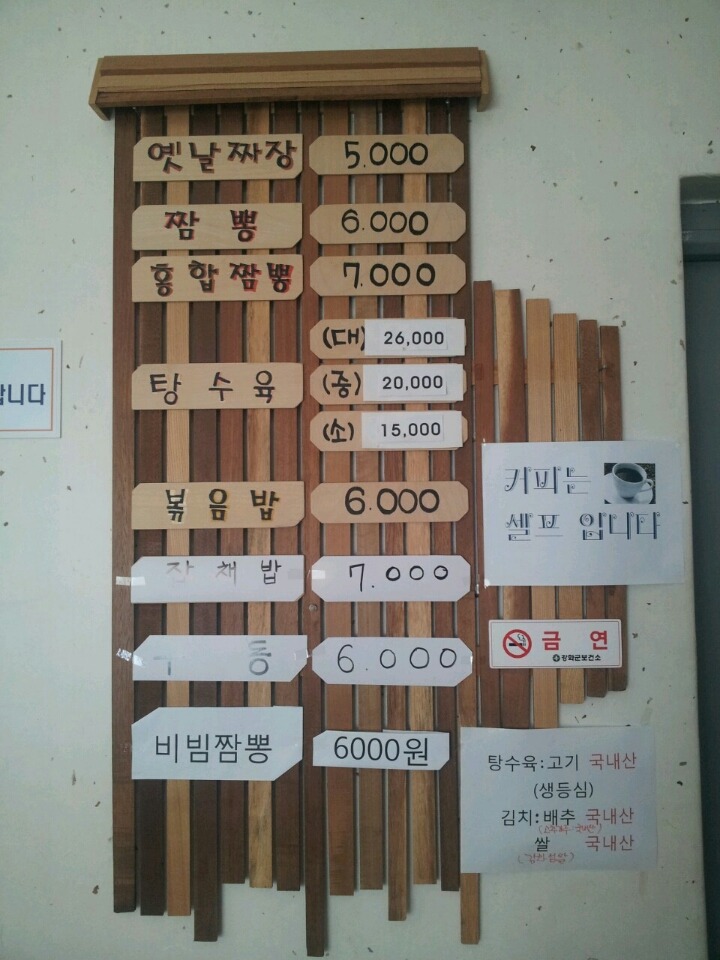 옛날짜장 5.000
짬 뽕 6.000
홍합짬뽕 7.000
(대) 26,000
탕 수 육 (중) 20,000
(소) 15,000
볶 음 밥 6.000
잡 채 밥 7.000
6.000
비빔짬뽕 6000원
니다
커피는
셀프 입니다
금 연
강화군보건소
탕수육:고기 국내산
(생등심)
김치:배추 국내산
쌀 국내산